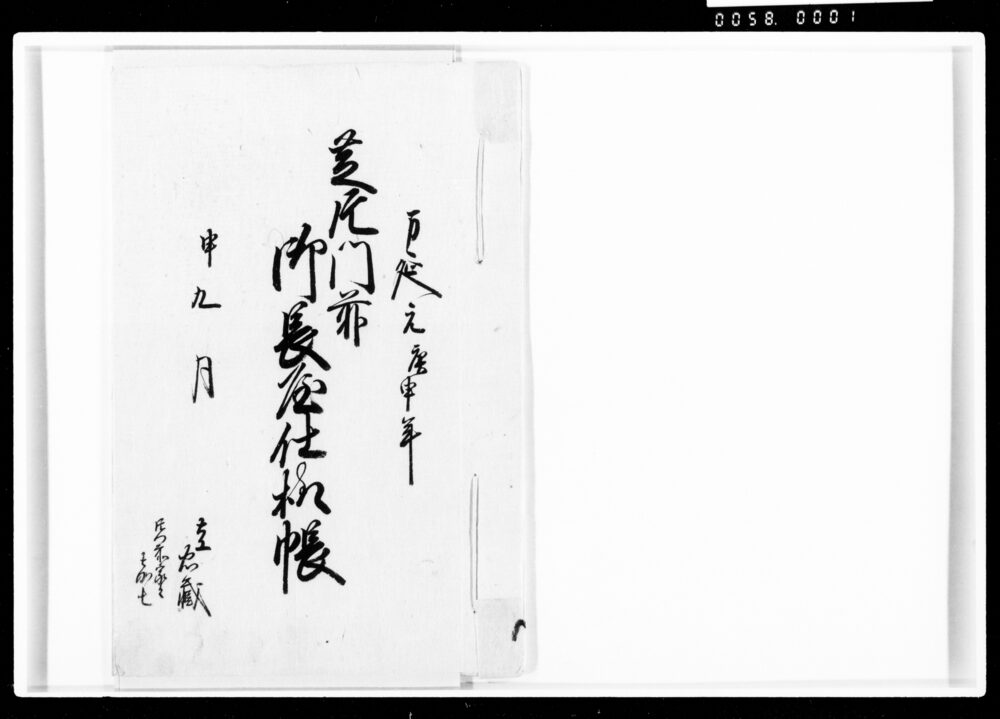 0058. 0001
万延元庚申年
芝片門前
御長屋仕様帳
申九月